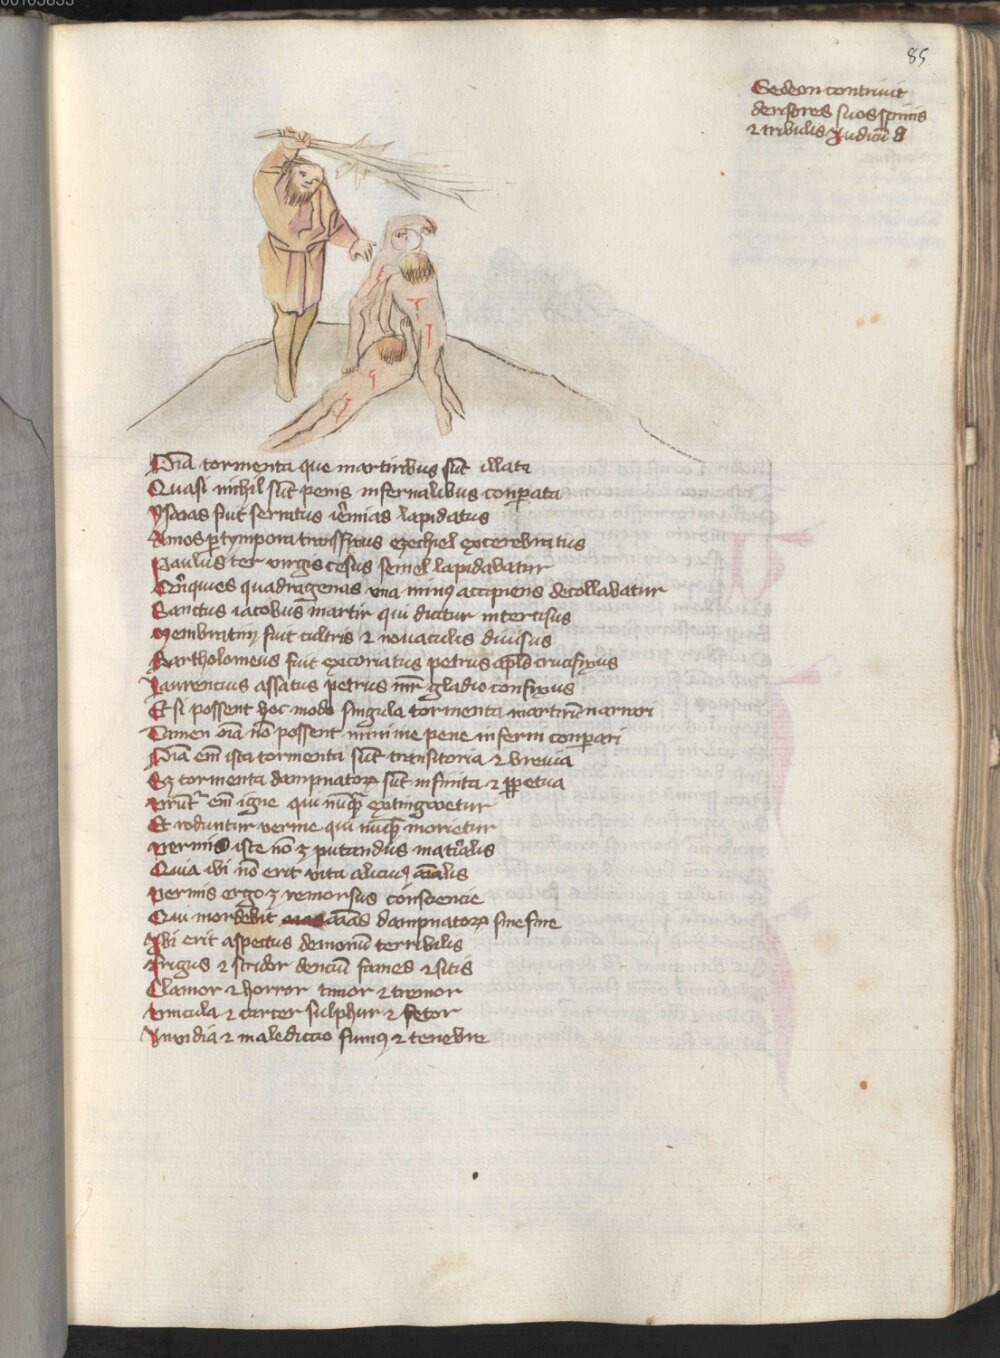 85
Gedeon contrivit
derisores suos spinis
⁊ tribulis Judicū 8
Oīa tormenta que martiribus sūt illata
Quasi nichil sūt penis infernalibus conꝑata
Ysaias fuit serratus iēmias lapidatus
Amos ꝑ tympora transfixus ezechiel excerebratus
Paulus ter virgis cesus semel lapidabatur
Q̄nquies quadragenas vna minꝯ accipiens decollabatur
Sanctus iacobus martir qui dicitur intercisus
Membratim fuit cultris ⁊ nouaculis diuisus
Bartholomeus fuit excoriatus petrus apl̄s crucifixus
Laurencius assatus petrus mr̄ gladio confixus
Et si possent hoc modo singula tormenta martirū narrari
Tamen oīa nō possent minime pene inferni conꝑari
Oīa em̄ ista tormenta sūt transitoria ⁊ brevia
Sꝫ tormenta dampnatoꝝ sūt infinita ⁊ ꝑpetua
vrūt᷑ em̄ igne qui nūqꝫ extingwetur
Et roduntur verme qui nūqꝫ morietur
vermis iste nō ꝫ putandus mat̄ialis
Quia ibi nō erit vita alicuiꝯ aīalis
vermis ergo ꝫ remorsus consciencie
Qui mordebit aīas dampnatoꝝ sine fine
Ibi erit aspectus demonū terribilis
Frigus ⁊ stridor dencīu fames ⁊ sitis
Clamor ⁊ horror timor ⁊ tremor
vincula ⁊ carcer sulphur ⁊ fetor
Invidia ⁊ maledictio fumꝯ ⁊ tenebre